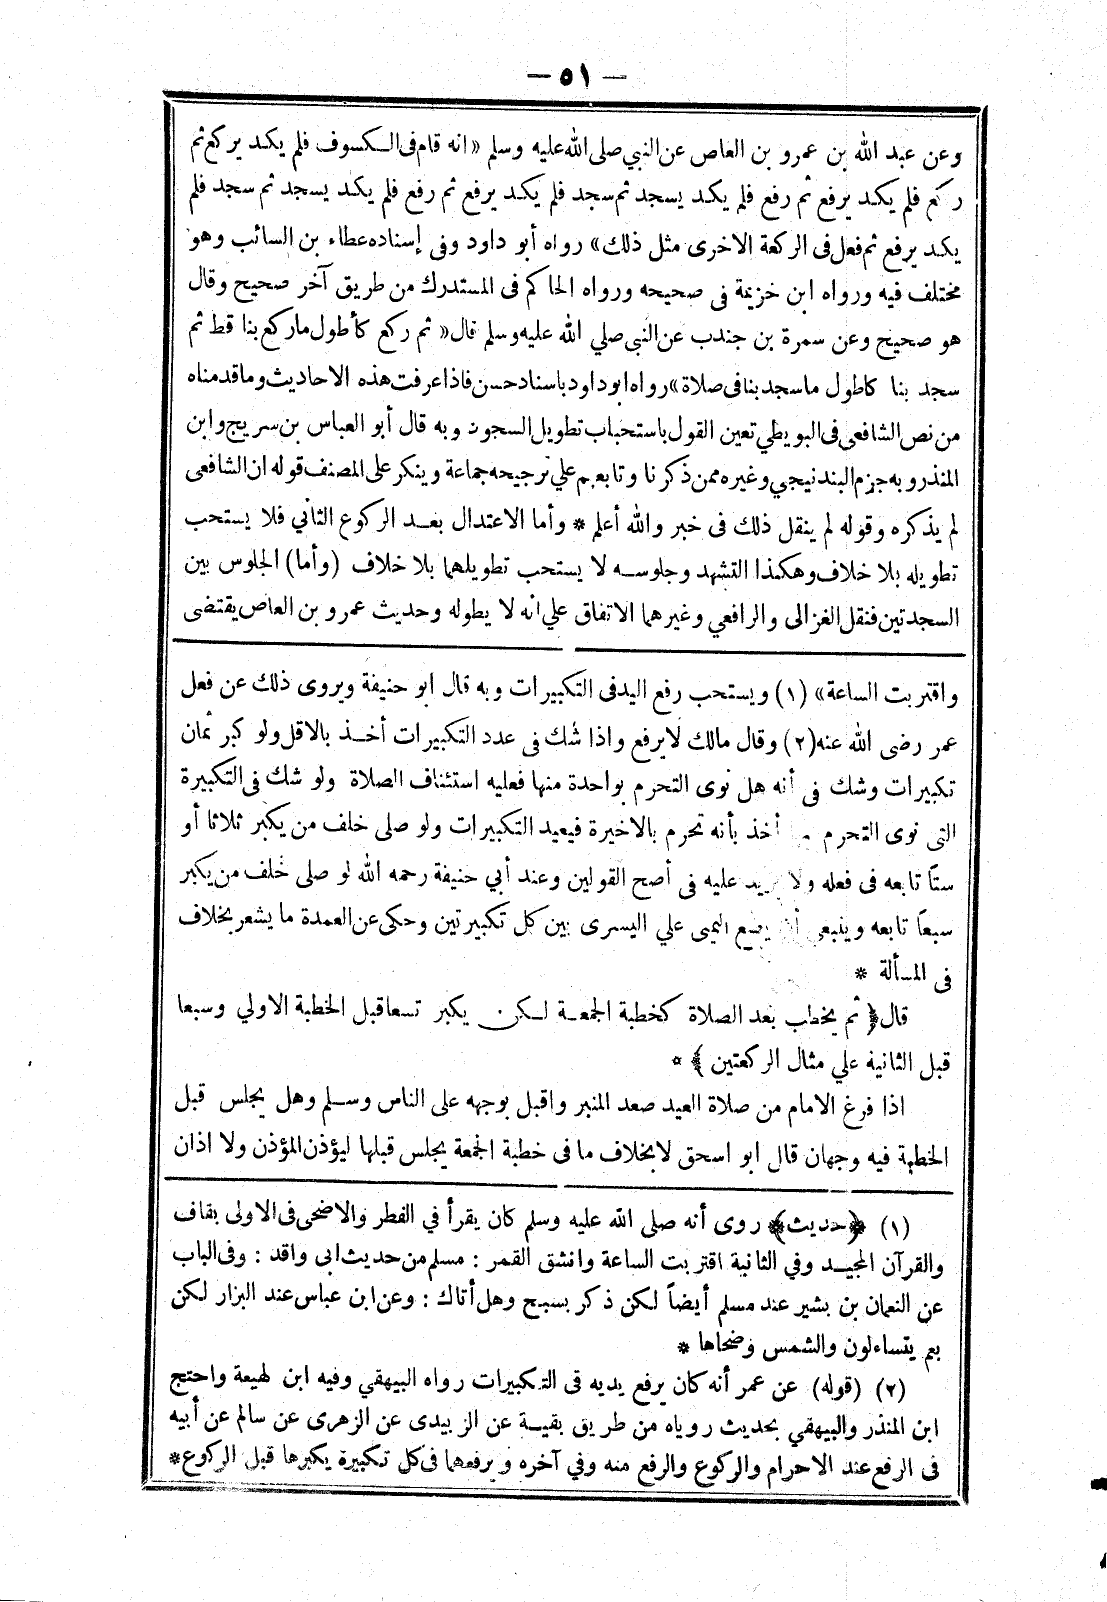 — ٥١ —
وعن عبد الله بن عمرو بن العاص عن النبي صلى الله عليه وسلم «انه قام فى الكسوف فلم يكد يركع ثم
ركع فلم يكد يرفع ثم رفع فلم يكد يسجد ثم سجد فلم يكد يرفع ثم رفع فلم يكد يسجد ثم سجد فلم
يكد يرفع ثم فعل فى الركعة الاخرى مثل ذلك» رواه أبو داود وفى إسناده عطاء بن السائب وهو
مختلف فيه ورواه ابن خزيمة فى صحيحه ورواه الحاكم فى المستدرك من طريق آخر صحيح وقال
هو صحيح وعن سمرة بن جندب عن النبى صلي الله عليه وسلم قال «ثم ركع كأطول ماركع بنا قط ثم
سجد بنا كاطول ماسجد بنا فى صلاة» رواه ابو داود باسناد حسن فاذا عرفت هذه الاحاديث وما قدمناه
من نص الشافعى فى البويطي تعين القول باستحباب تطويل السجود وبه قال أبو العباس بن سريج وابن
المنذر وبه جزم البندنيجي وغيره ممن ذكرنا وتابعهم علي ترجيحه جماعة وينكر على المصنف قوله ان الشافعى
لم يذكره وقوله لم ينقل ذلك فى خبر والله أعلم * وأما الاعتدال بعد الركوع الثاني فلا يستحب
تطويله بلا خلاف وهكذا التشهد وجلوسه لا يستحب تطويلهما بلا خلاف (وأما) الجلوس بين
السجدتين فنقل الغزالى والرافعي وغيرهما الاتفاق علي انه لا يطوله وحديث عمرو بن العاص يقتضى
واقتربت الساعة» (١) ويستحب رفع اليد فى التكبيرات وبه قال ابو حنيفة ويروى ذلك عن فعل
عمر رضى الله عنه (٢) وقال مالك لا يرفع واذا شك فى عدد التكبيرات أخذ بالاقل ولو كبر ثمان
تكبيرات وشك فى أنه هل نوى التحرم بواحدة منها فعليه استئناف الصلاة ولو شك فى التكبيرة
التى نوى التحرم أخذ بأنه تحرم بالاخيرة فيعيد التكبيرات ولو صلى خلف من يكبر ثلاثا أو
ستاً تابعه فى فعله ولا يزيد عليه فى أصح القولين وعند أبي حنيفة رحمه الله لو صلى خلف من يكبر
سبعاً تابعه وينبغى أن يضع اليمى علي اليسرى بين كل تكبيرتين وحكى عن العمدة ما يشعر بخلاف
فى المسألة *
قال ﴿ ثم يخطب بعد الصلاة كخطبة الجمعة لكن يكبر تسعا قبل الخطبة الاولي وسبعا
قبل الثانية علي مثال الركعتين ﴾ *
اذا فرغ الامام من صلاة العيد صعد المنبر واقبل بوجهه على الناس وسلم وهل يجلس قبل
الخطبة فيه وجهان قال ابو اسحق لا بخلاف ما فى خطبة الجمعة يجلس قبلها ليؤذن المؤذن ولا اذان
(١) ﴿حديث﴾ روى أنه صلى الله عليه وسلم كان يقرأ في الفطر والاضحى فى الاولى بقاف
والقرآن المجيد وفي الثانية اقتربت الساعة وانشق القمر : مسلم من حديث ابى واقد : وفى الباب
عن النعمان بن بشير عند مسلم أيضاً لكن ذكر بسبح وهل أتاك : وعن ابن عباس عند البزار لكن
بعم يتساءلون والشمس وضحاها *
(٢) (قوله) عن عمر أنه كان يرفع يديه فى التكبيرات رواه البيهقي وفيه ابن لهيعة واحتج
ابن المنذر والبيهقي بحديث روياه من طريق بقية عن الزبيدى عن الزهرى عن سالم عن أبيه
فى الرفع عند الاحرام والركوع والرفع منه وفي آخره ويرفعهما فى كل تكبيرة يكبرها قبل الركوع *